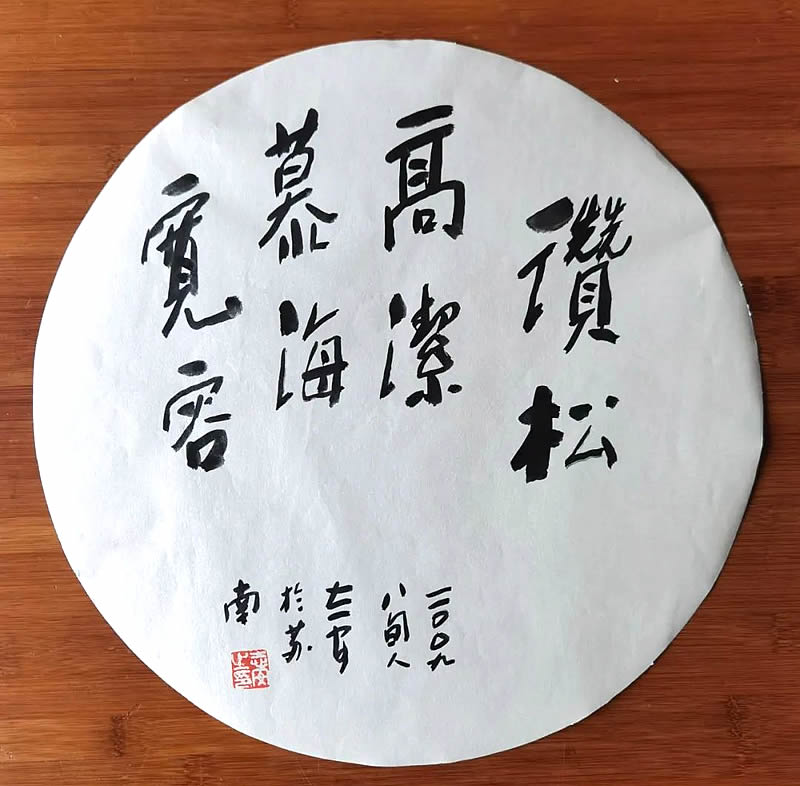 讚松
高潔
慕海
寬容
二〇〇九
八旬人
於苏
南